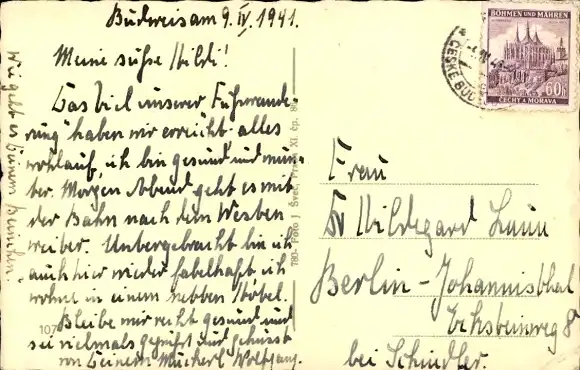 Budweis am 9. IV. 1941.
Meine süße Hildi!
Das Ziel unserer "Fußwande-
rung" haben wir erreicht. alles
wohlauf, ich bin gesund und mun-
ter. Morgen Abend geht es mit
der Bahn nach dem Westen
weiter. Untergebracht bin ich
auch hier wieder fabelhaft ich
wohne in einem netten Hotel.
Bleibe mir recht gesund und
sei vielmals gegrüßt und geküsst
von Deinem Muckerl Wolfgang.
Wie geht es Deinem
Frau
Hildegard
Berlin-Johannisthal
Ecksteinweg 8
bei Schindler.
BÖHMEN UND MÄHREN
60h
ČECHY A MORAVA
ČESKÉ BUD
780- Foto J. Švec,
107